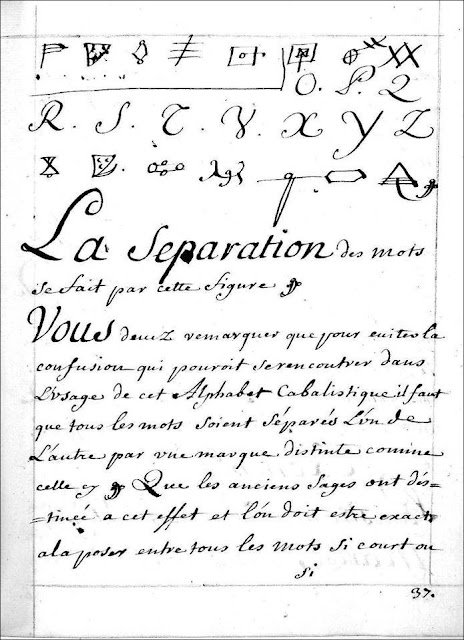 O. P. Q
R. S. T. V. X Y Z
La Separation des mots
se fait par cette figure
Vous devez remarquer que pour eviter la
confusion qui pouroit se rencontrer dans
L'vsage de cet Alphabet Cabalistique il faut
que tous les mots soient séparés L'ún de
L'autre par vne marque distinte comme
celle cy Que les anciens Sages ont dés=
=tineé a cet effet et lón doit estre exact
a la poser entre tous les mots si court ou
si
37.